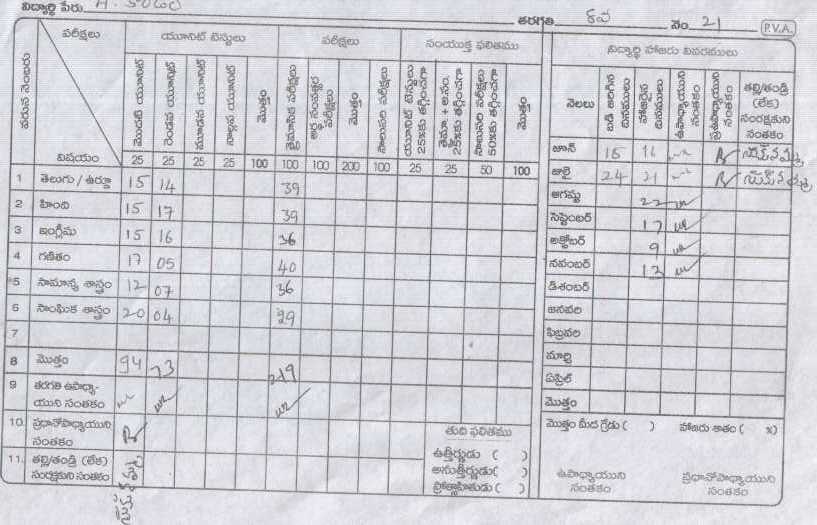 విద్యార్థి పేరు తరగతి 8వ నెం. 21 (P.V.A.)
వరుస నెంబరు పరీక్షలు యూనిట్ టెస్టులు పరీక్షలు సంయుక్త ఫలితము
విషయం మొదటి యూనిట్ రెండవ యూనిట్ మూడవ యూనిట్ నాల్గవ యూనిట్ మొత్తం త్రైమాసిక పరీక్షలు అర్థ సంవత్సర పరీక్షలు మొత్తం సాలుసరి పరీక్షలు యూనిట్ టెస్టులు 25%కు తగ్గించగా త్రైమా + అ.సం. 25%కు తగ్గించగా సాలుసరి పరీక్షలు 50%కు తగ్గించగా మొత్తం
25 25 25 25 100 100 100 200 100 25 25 50 100
1 తెలుగు / ఉర్దూ 15 14 39
2 హింది 15 17 39
3 ఇంగ్లీషు 15 16 36
4 గణితం 17 05 40
5 సామాన్య శాస్త్రం 12 07 36
6 సాంఘిక శాస్త్రం 20 04 29
7
8 మొత్తం 94 73 219
9 తరగతి ఉపాధ్యా-
యుని సంతకం
10. ప్రధానోపాధ్యాయుని
సంతకం
11. తల్లి/తండ్రి (లేక)
సంరక్షకుని సంతకం
తుది ఫలితము
ఉత్తీర్ణుడు ( )
అనుత్తీర్ణుడు( )
ప్రోత్సాహితుడు ( )
విద్యార్థి హాజరు వివరములు
నెలలు బడి జరిగిన దినములు హాజరైన దినములు ఉపాధ్యాయుని సంతకం ప్రధానోపాధ్యాయుని సంతకం తల్లి/తండ్రి (లేక) సంరక్షకుని సంతకం
జూన్ 16 16
జులై 24 21
ఆగష్టు 22
సెప్టెంబర్ 17
అక్టోబర్ 9
నవంబర్ 13
డిశంబర్
జనవరి
ఫిబ్రవరి
మార్చి
ఏప్రిల్
మొత్తం
మొత్తం మీద గ్రేడు ( ) హాజరు శాతం ( %)
ఉపాధ్యాయుని
సంతకం
ప్రధానోపాధ్యాయుని
సంతకం